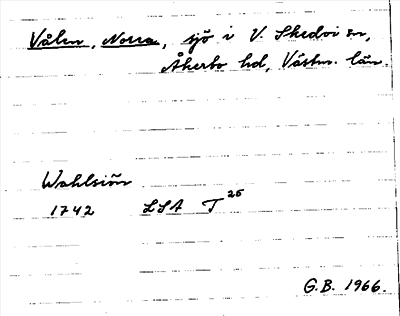 Vålen, Norra, sjö i V. Skedvi sn,
Åkerbo hd, Västm. län.
Wahlsiön
1742 LSA T 25
G.B. 1966.